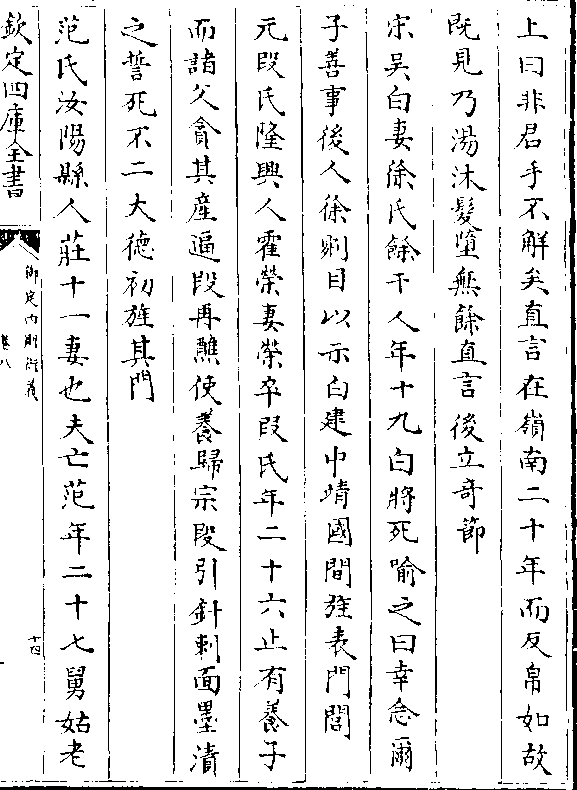 上曰非君手不解矣直言在嶺南二十年而反帛如故
既見乃湯沐髮墮無餘直言後立奇節
宋吳白妻徐氏餘干人年十九白將死喻之曰幸念爾
子善事後人徐剔目以示白建中靖國間旌表門閭
元段氏隆興人霍榮妻榮卒段氏年二十六止有養子
而諸父貪其產逼段再醮使養歸宗段引針刺面墨漬
之誓死不二大德初旌其門
范氏汝陽縣人莊十一妻也夫亡范年二十七舅姑老
欽定四庫全書
御定內則衍義
卷八
十四